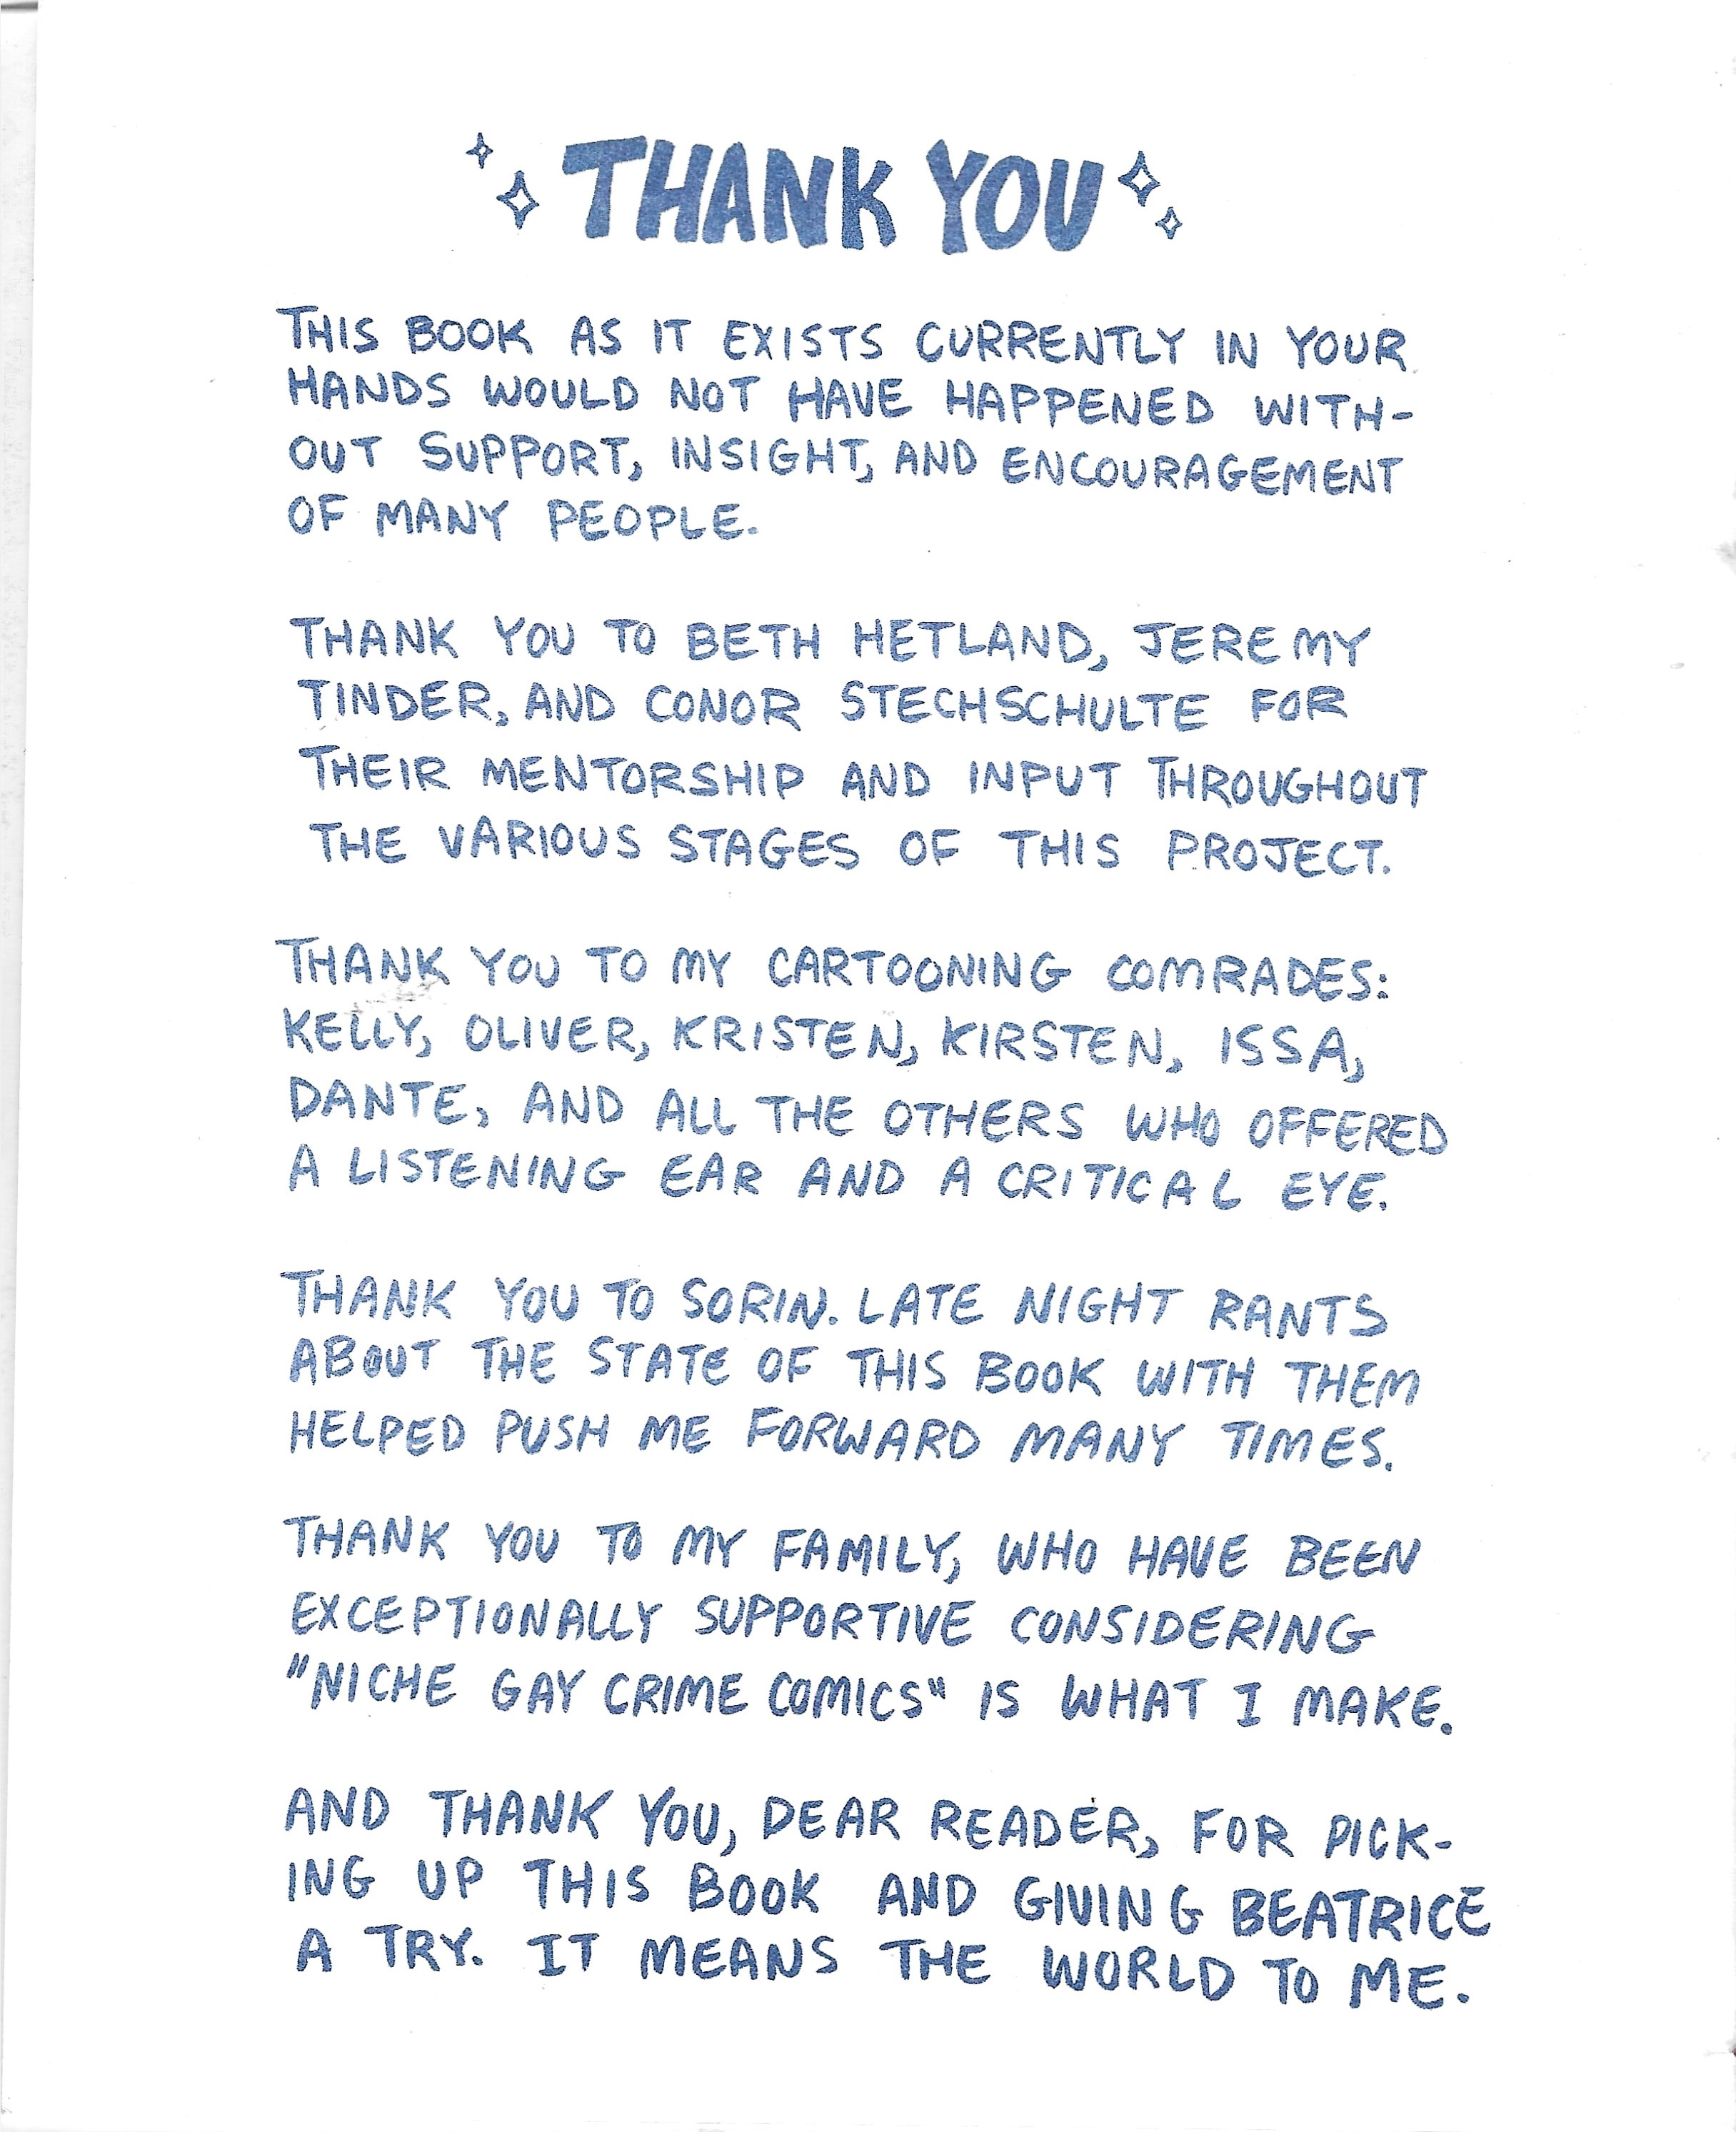 THANK YOU
THIS BOOK AS IT EXISTS CURRENTLY IN YOUR
HANDS WOULD NOT HAVE HAPPENED WITH-
OUT SUPPORT, INSIGHT, AND ENCOURAGEMENT
OF MANY PEOPLE.
THANK YOU TO BETH HETLAND, JEREMY
TINDER, AND CONOR STECHSCHULTE FOR
THEIR MENTORSHIP AND INPUT THROUGHOUT
THE VARIOUS STAGES OF THIS PROJECT.
THANK YOU TO MY CARTOONING COMRADES:
KELLY, OLIVER, KRISTEN, KIRSTEN, ISSA,
DANTE, AND ALL THE OTHERS WHO OFFERED
A LISTENING EAR AND A CRITICAL EYE.
THANK YOU TO SORIN. LATE NIGHT RANTS
ABOUT THE STATE OF THIS BOOK WITH THEM
HELPED PUSH ME FORWARD MANY TIMES.
THANK YOU TO MY FAMILY, WHO HAVE BEEN
EXCEPTIONALLY SUPPORTIVE CONSIDERING
"NICHE GAY CRIME COMICS" IS WHAT I MAKE.
AND THANK YOU, DEAR READER, FOR PICK-
ING UP THIS BOOK AND GIVING BEATRICE
A TRY. IT MEANS THE WORLD TO ME.